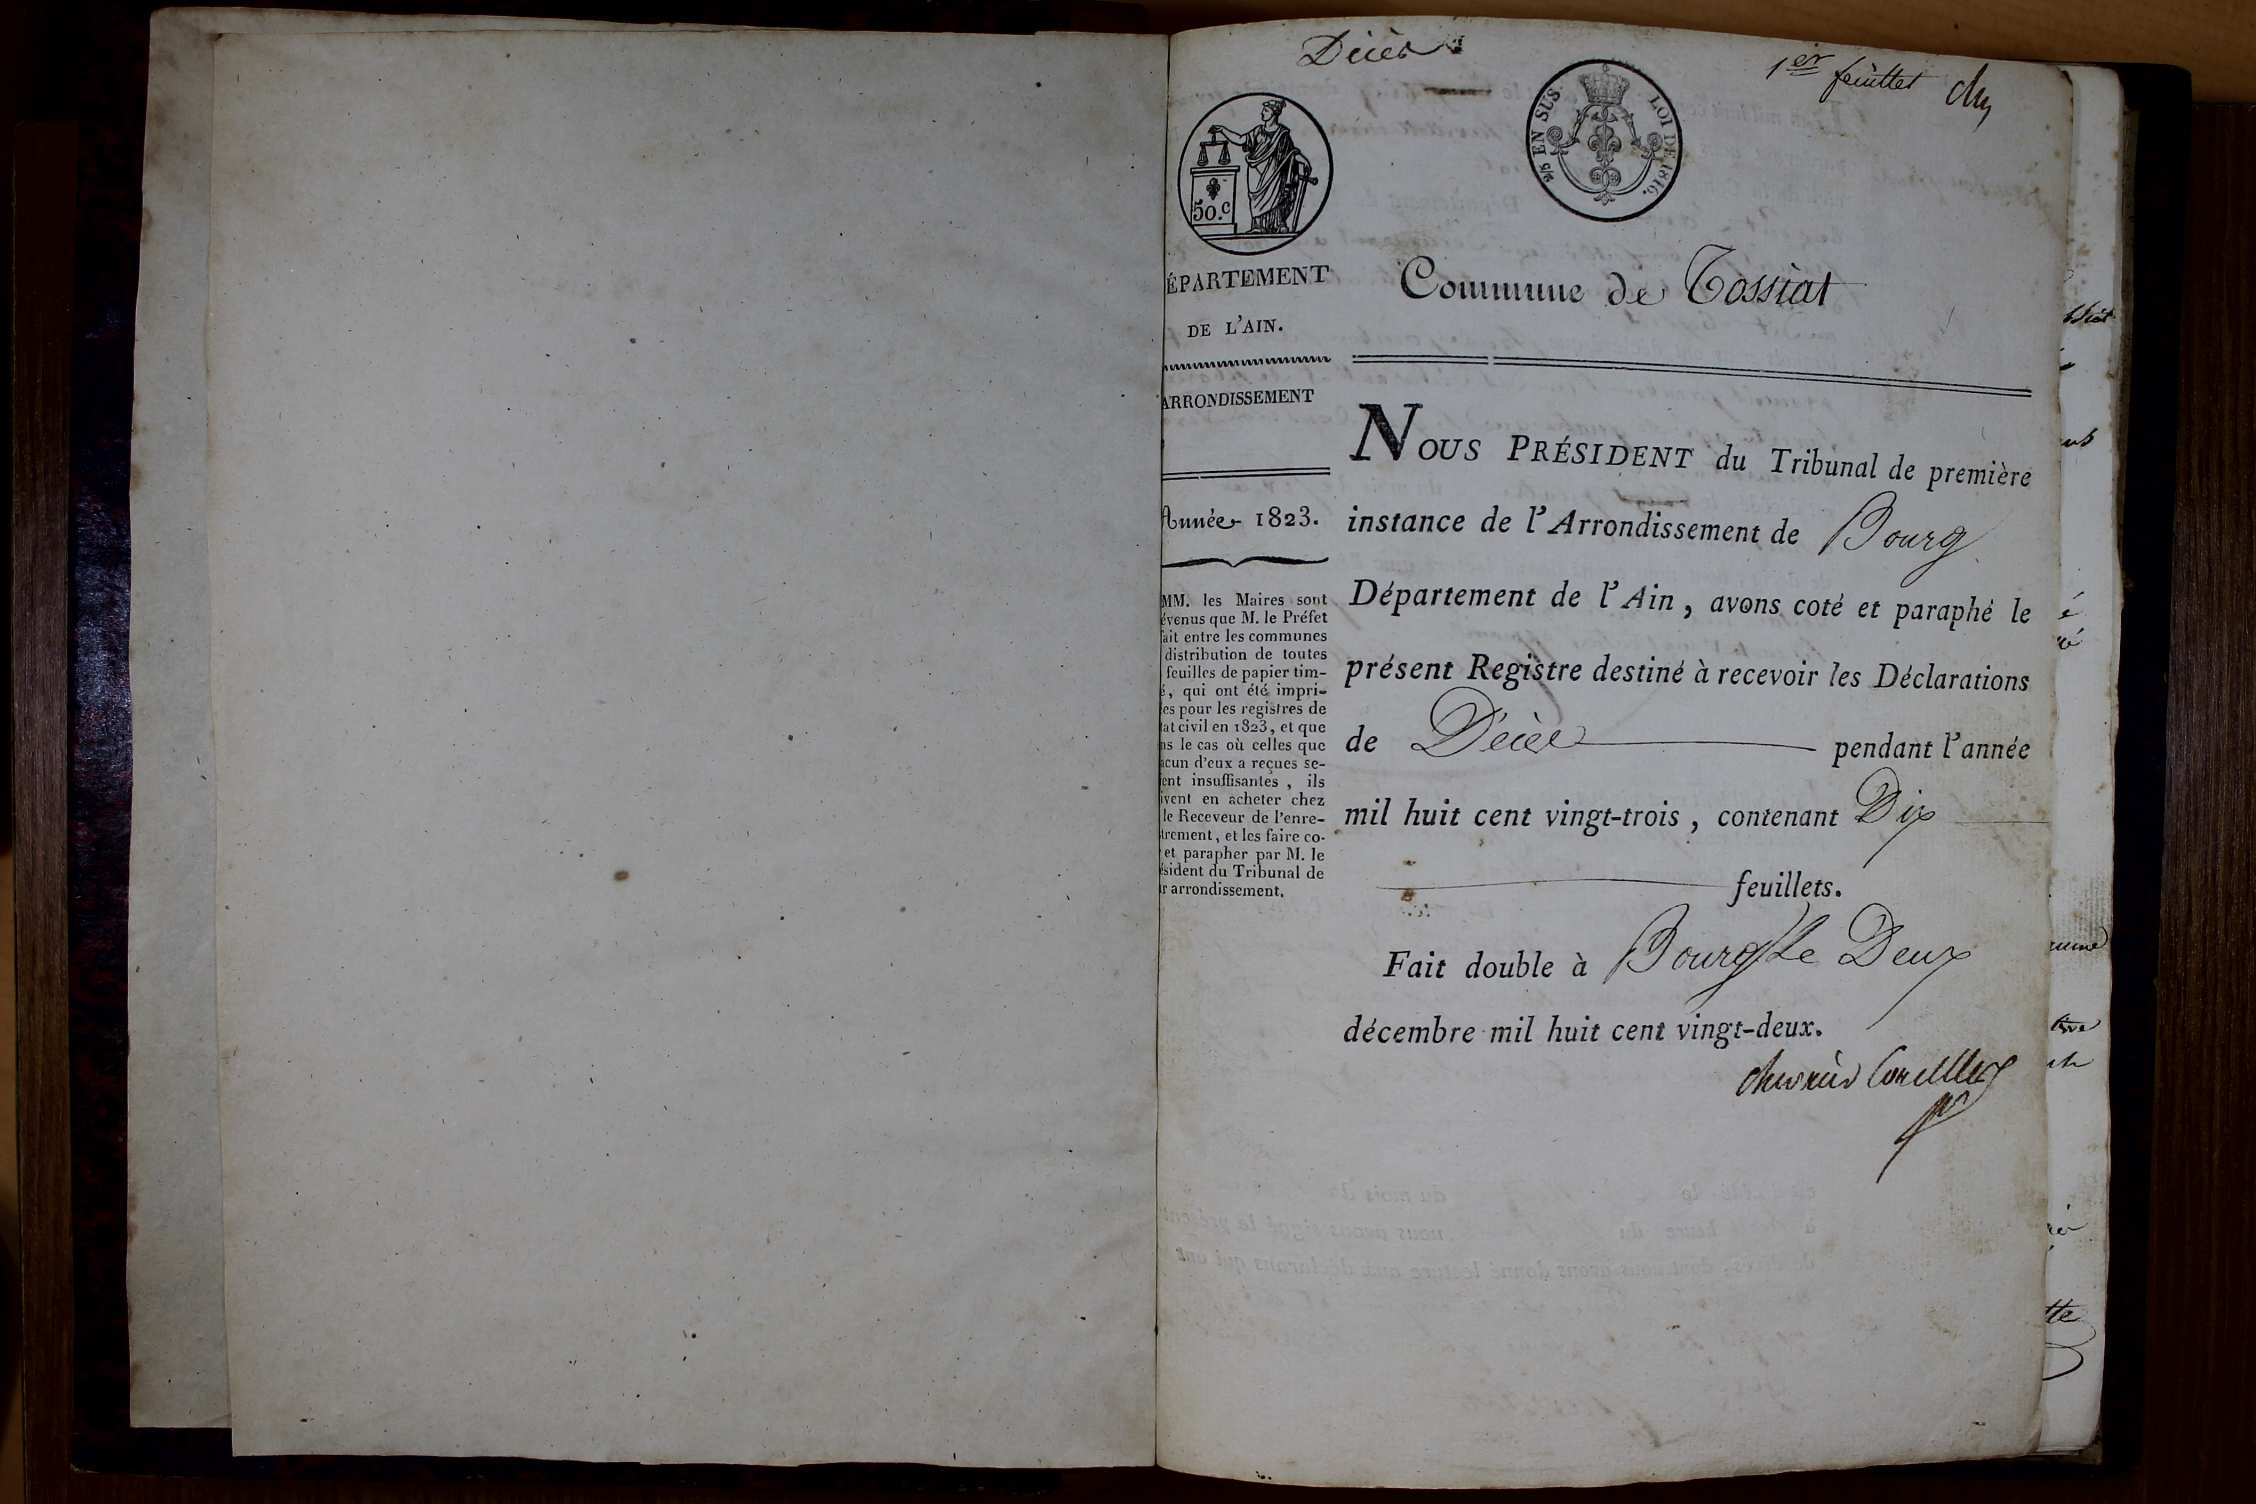 Décès
1er feuillet
50.c
2/5 EN SUS. LOI DE 1816.
ÉPARTEMENT
DE L'AIN.
ARRONDISSEMENT
Année 1823.
MM. les Maires sont
évenus que M. le Préfet
fait entre les communes
distribution de toutes
feuilles de papier tim-
é, qui ont été impri-
es pour les registres de
tat civil en 1823, et que
ns le cas où celles que
acun d'eux a reçues se-
ient insuffisantes, ils
ivent en acheter chez
le Receveur de l'enre-
trement, et les faire co-
et parapher par M. le
ésident du Tribunal de
r arrondissement.
Commune de Tossiat
NOUS PRÉSIDENT du Tribunal de première
instance de l'Arrondissement de Bourg
Département de l'Ain, avons coté et paraphé le
présent Registre destiné à recevoir les Déclarations
de Décès pendant l'année
mil huit cent vingt-trois, contenant Dix
feuillets.
Fait double à Bourg Le Deux
décembre mil huit cent vingt-deux.